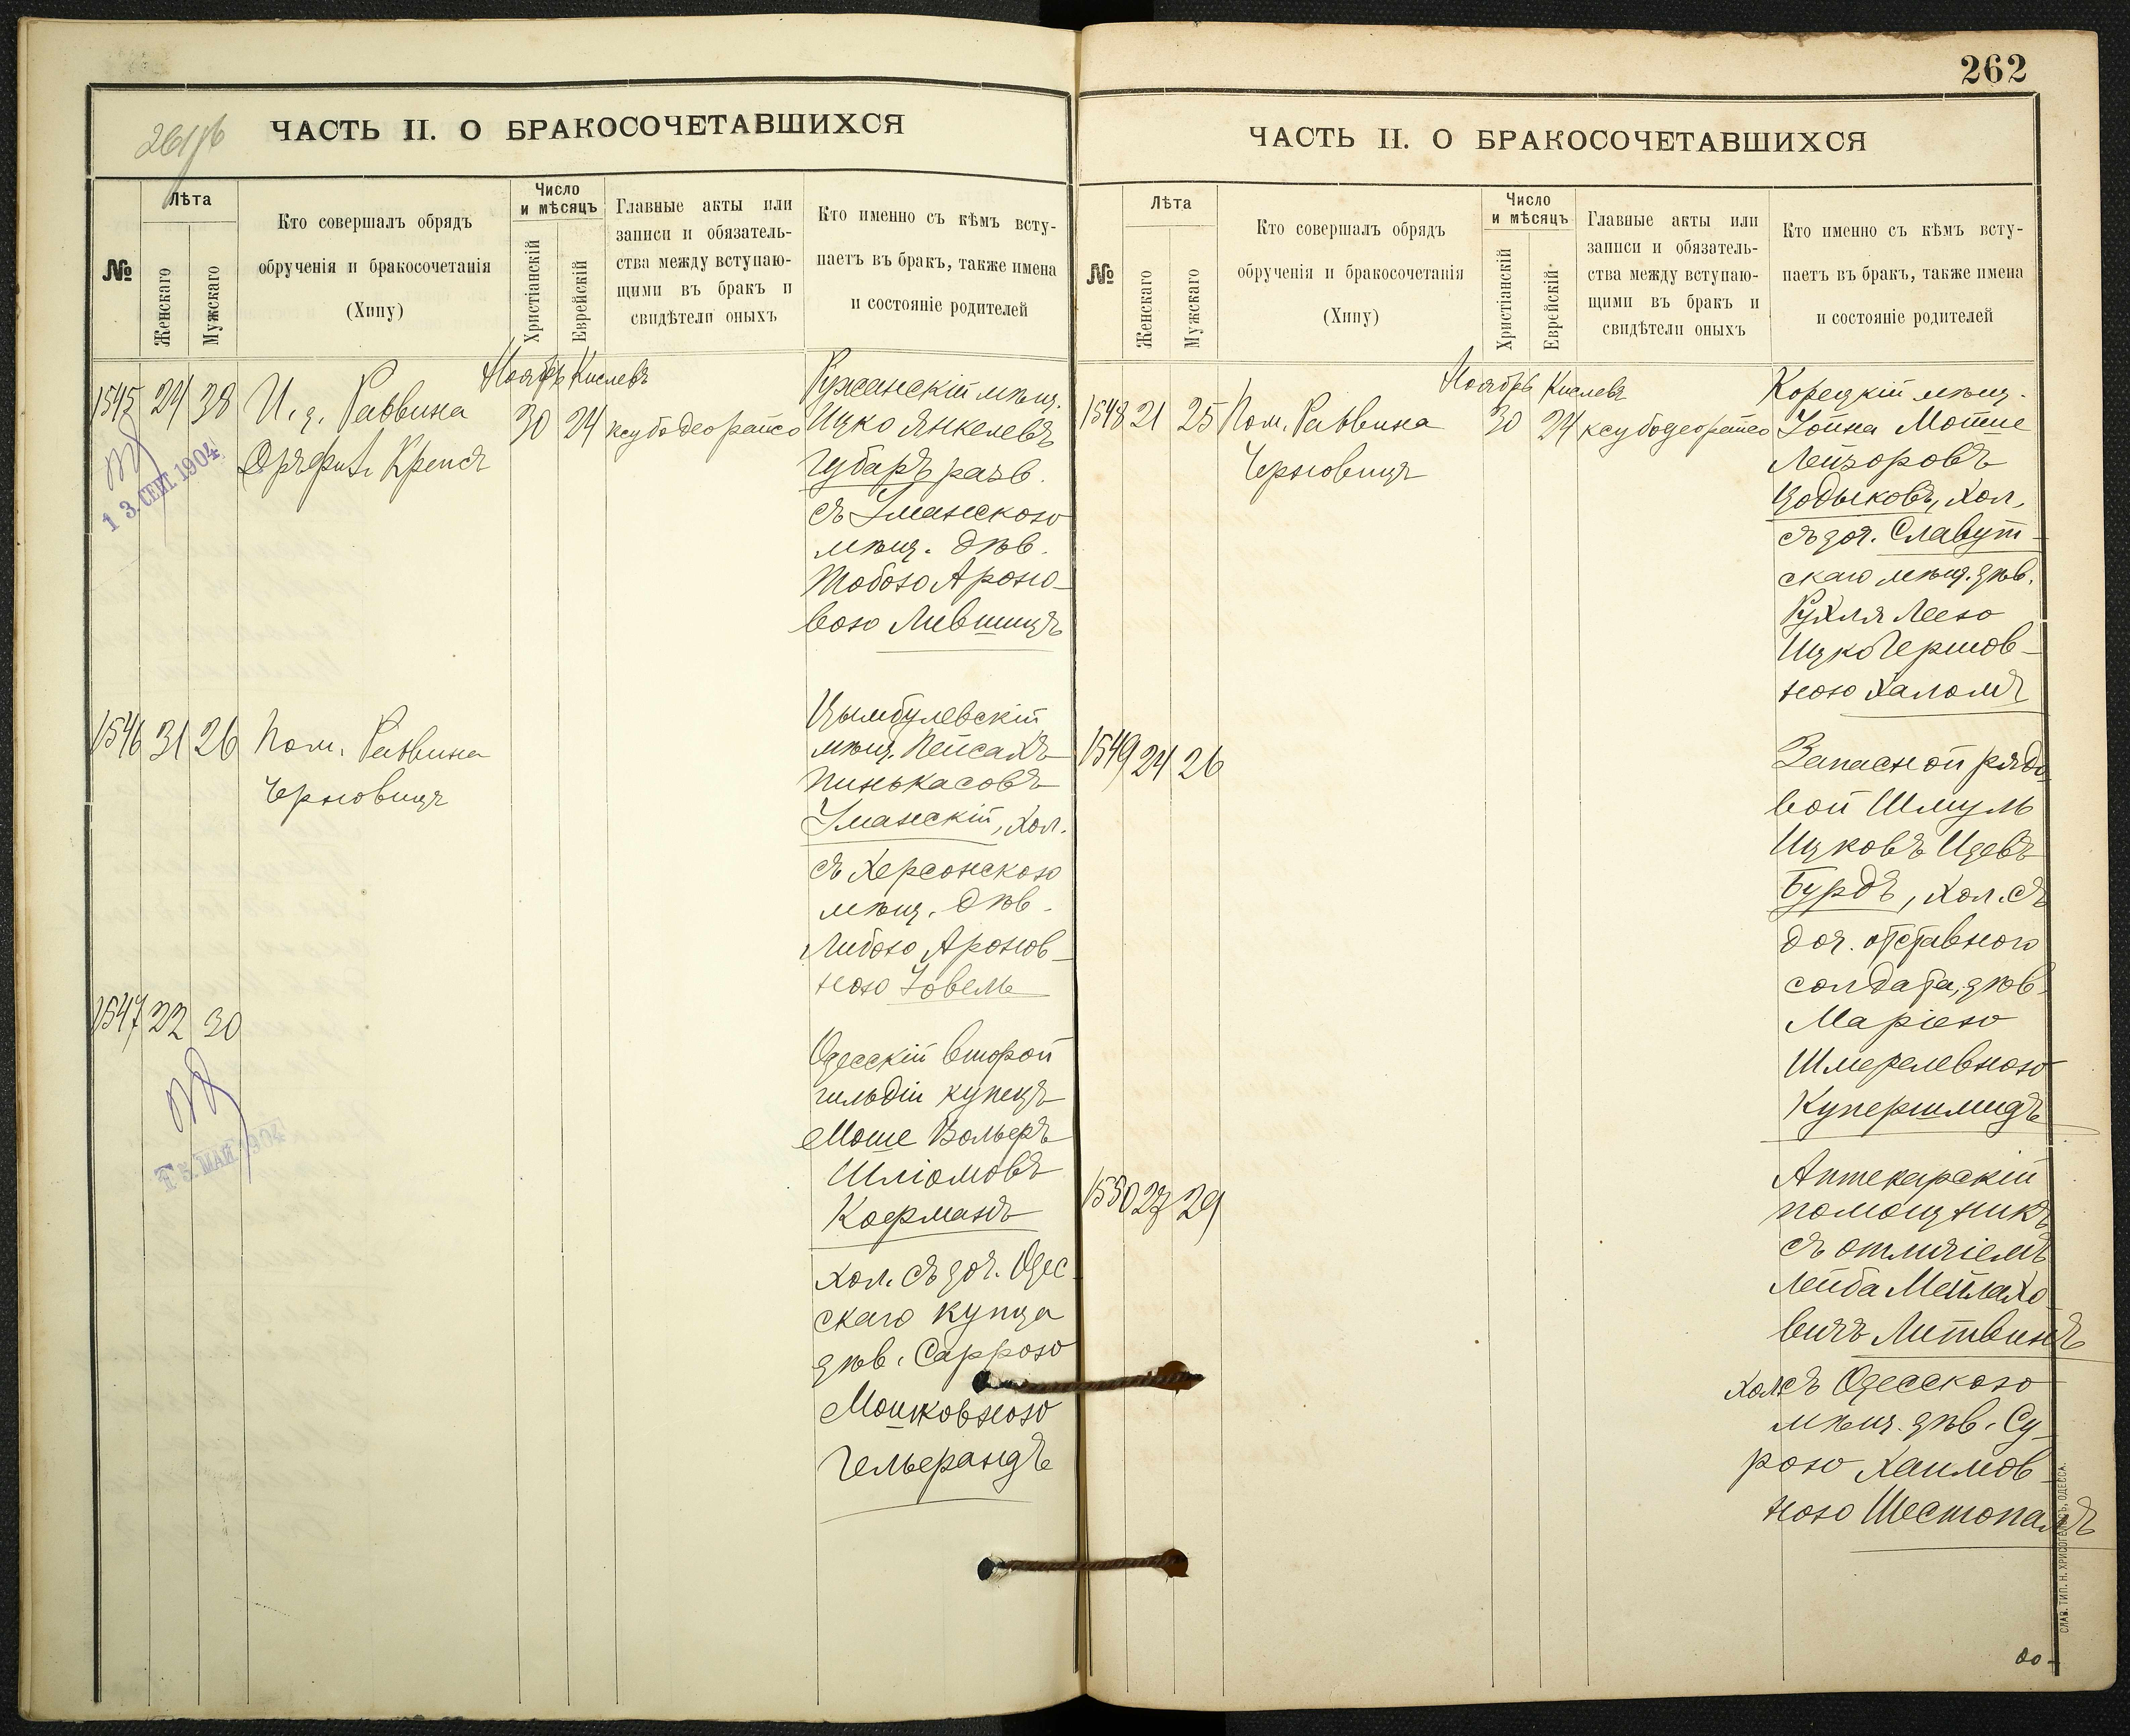 261 об
ЧАСТЬ II. О БРАКОСОЧЕТАВШИХСЯ
№
Лѣта
Женскаго
Мужскаго
Кто совершалъ обрядъ
обрученія и бракосочетанія
(Хипу)
Число
и мѣсяцъ
Христіанскій
Еврейскій
Главные акты или
записи и обязатель-
ства между вступаю-
щими въ бракъ и
свидѣтели оныхъ
Кто именно съ кѣмъ всту-
паетъ въ бракъ, также имена
и состояніе родителей
Ноябрь Кислевъ
1545 24 38 И. д. Раввина 30 24 ксубо деорайсо
Крепсъ
13. СЕНТ. 1904
Ружанскій мѣщ.
Ицко Янкелевъ
Губаръ разв.
съ Уманскою
мѣщ. дѣв.
Тобою Ароно-
вою Лившицъ
1546 31 26 Пом. Раввина
Черновицъ
Цымбулевскій
мѣщ. Пейсахъ
Пинькасовъ
Уманскій, хол.
съ Херсонскою
мѣщ. дѣв.
Либою Аронов-
ною Ховель
1547 22 30
13. МАЙ 1904
Одесскій второй
гильдіи купецъ
Моше Вольфъ
Шліомовъ
Кофманъ
хол. съ доч. Одес
скаго купца
дѣв. Саррою
Мошковною
Гельфандъ
262
ЧАСТЬ II. О БРАКОСОЧЕТАВШИХСЯ
№
Лѣта
Женскаго
Мужскаго
Кто совершалъ обрядъ
обрученія и бракосочетанія
(Хипу)
Число
и мѣсяцъ
Христіанскій
Еврейскій
Главные акты или
записи и обязатель-
ства между вступаю-
щими въ бракъ и
свидѣтели оныхъ
Кто именно съ кѣмъ всту-
паетъ въ бракъ, также имена
и состояніе родителей
Ноябрь Кислевъ
1548 21 25 Пом. Раввина 30 24 ксубо деорайсо
Черновицъ
Корецкій мѣщ.
Іойна Мотте
Лейзоровъ
Цодыковъ, хол.
съ доч. Славут-
скаго мѣщ. дѣв.
Рухля Леею
Ицко Гершов-
ною Халомъ
1549 24 26
Запасной рядо
вой Шмуль
Ицковъ Идевъ
Бурдъ, хол. съ
доч. отставного
солдата, дѣв.
Маріею
Шмерелевною
Купершмидъ
1550 27 29
Аптекарскій
помощникъ
съ отличіемъ
Лейба Мейлахо-
вичъ Литвинъ
хол. съ Одесскою
мѣщ. дѣв. Су-
рою Хаимов-
ною Шестопалъ
СЛАВ. ТИП. Н. ХРИСОГЕЛОСЪ, ОДЕССА.